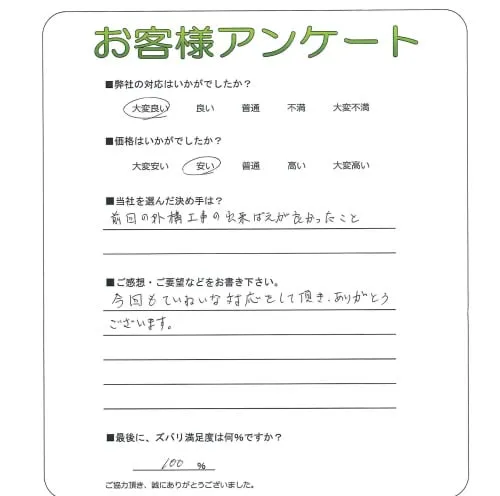 お客様アンケート
■弊社の対応はいかがでしたか？
大変良い 良い 普通 不満 大変不満
■価格はいかがでしたか？
大変安い 安い 普通 高い 大変高い
■当社を選んだ決め手は？
前回の外構工事の出来ばえが良かったこと
■ご感想・ご要望などをお書き下さい。
今回もていねいな対応をして頂き、ありがとう
ございます。
■最後に、ズバリ満足度は何％ですか？
100 ％
ご協力頂き、誠にありがとうございました。